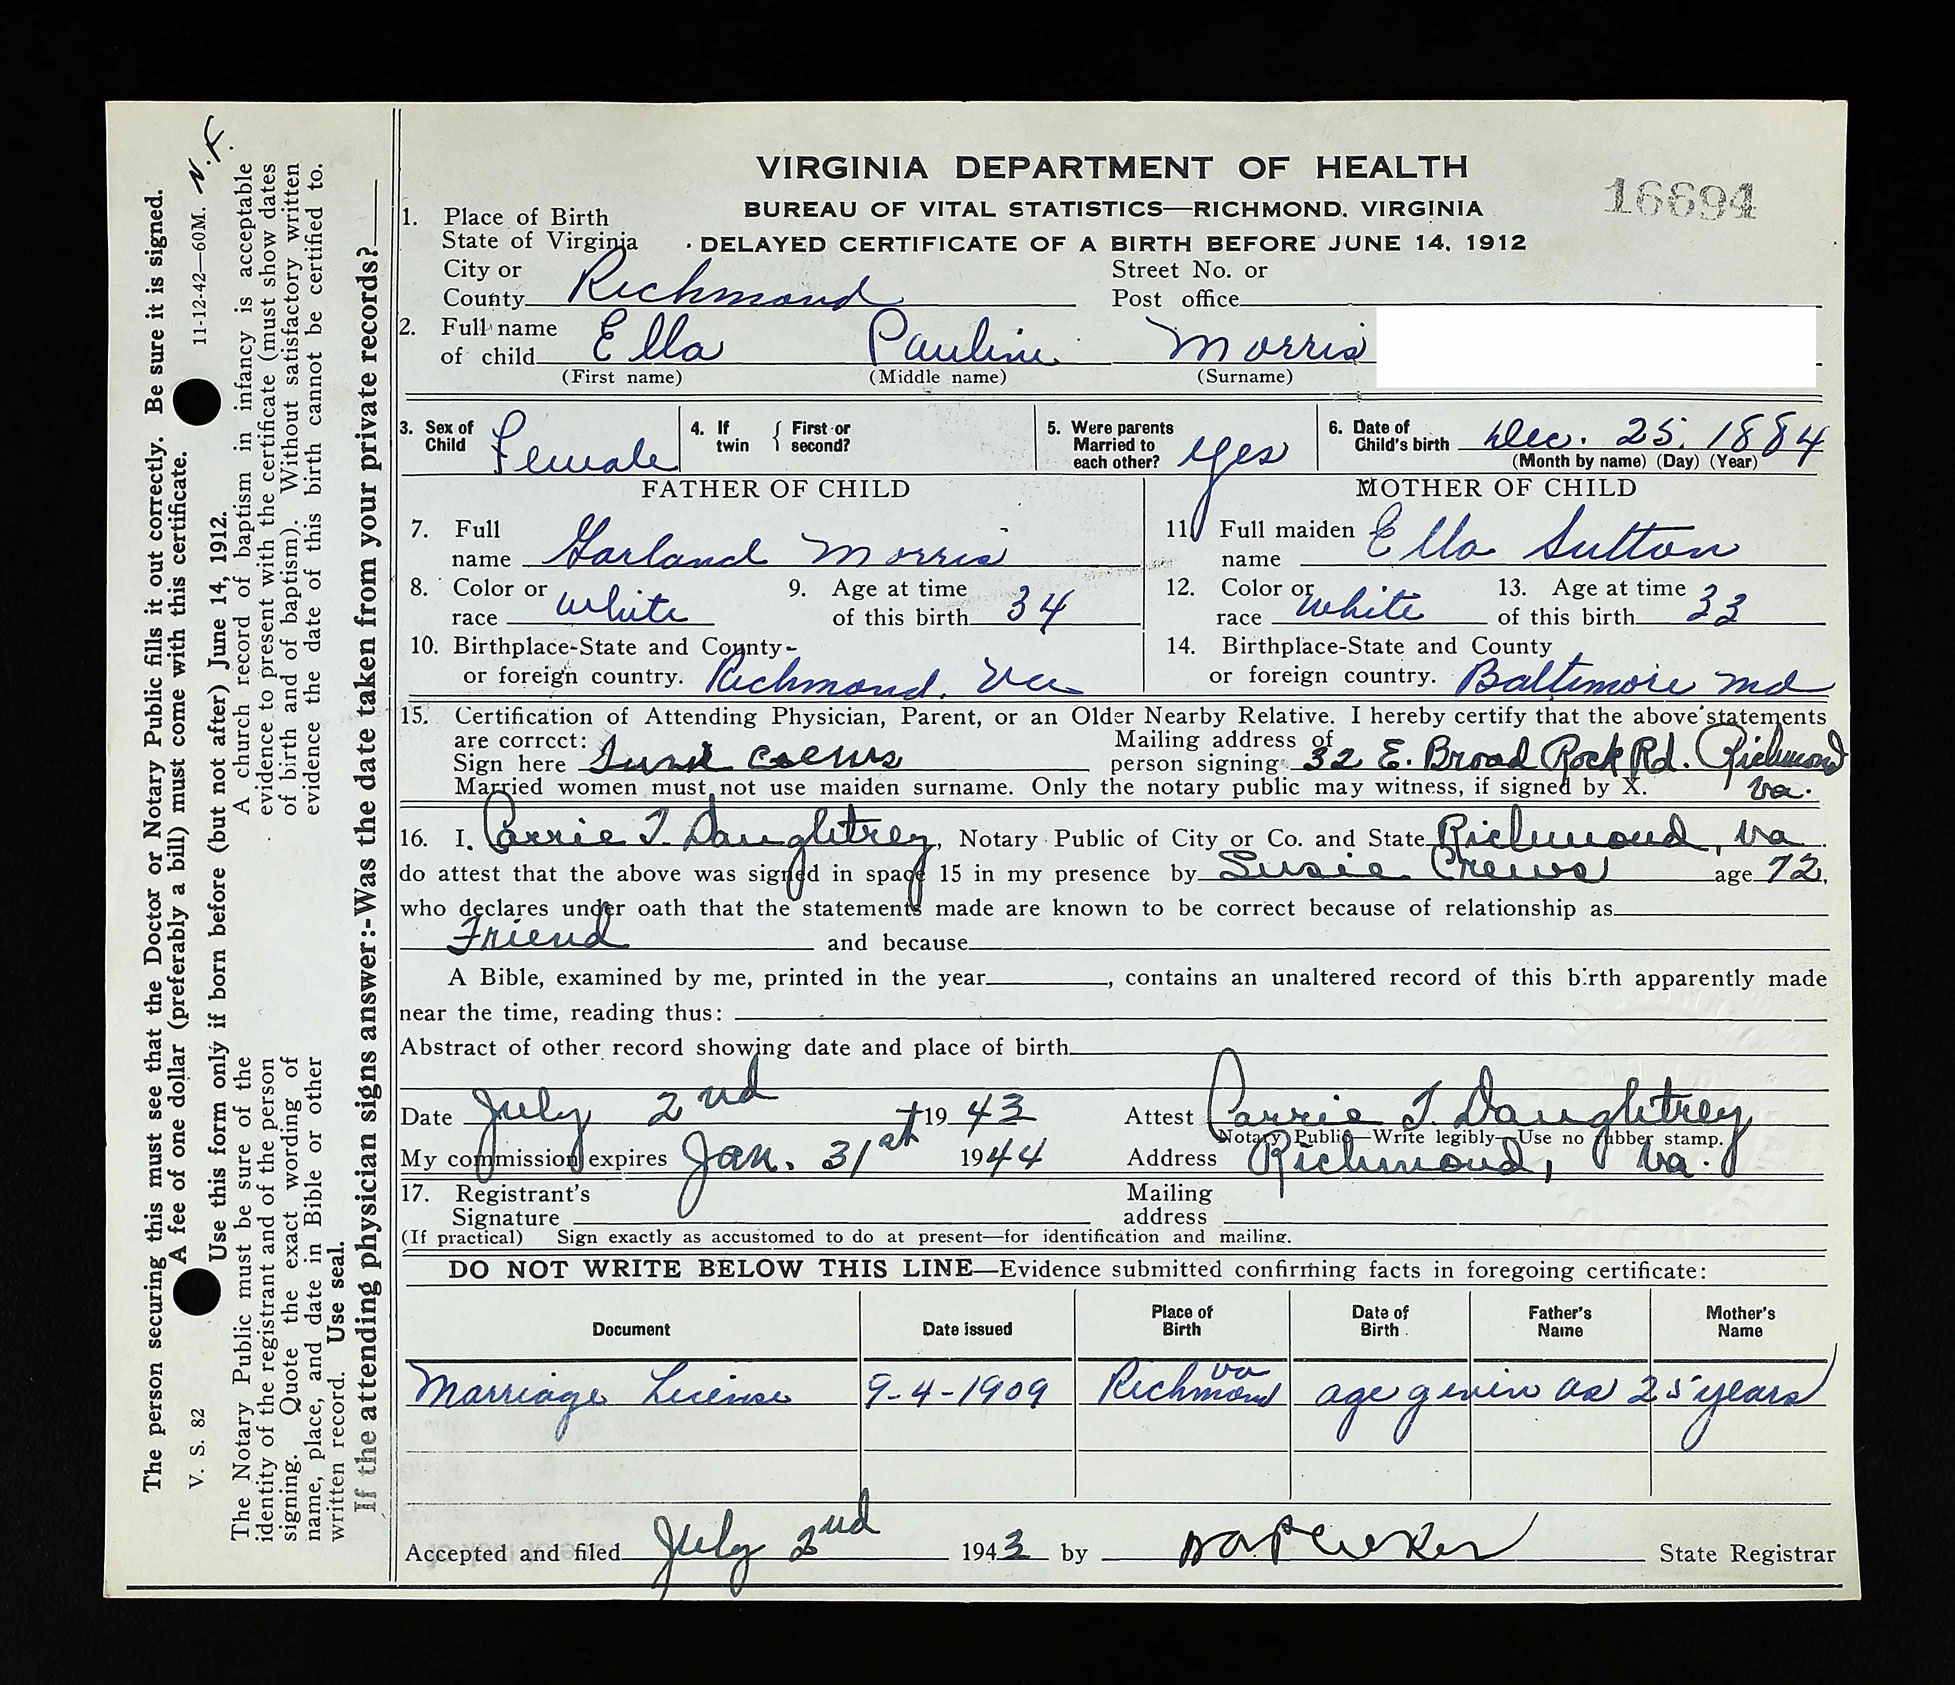 The person securing this must see that the Doctor or Notary Public fills it out correctly. Be sure it is signed.
A fee of one dollar (preferably a bill) must come with this certificate.
V. S. 82
11-12-42—60M. N.F.
Use this form only if born before (but not after) June 14, 1912.
The Notary Public must be sure of the
identity of the registrant and of the person
signing. Quote the exact wording of
name, place, and date in Bible or other
written record. Use seal.
A church record of baptism in infancy is acceptable
evidence to present with the certificate (must show dates
of birth and of baptism). Without satisfactory written
evidence the date of this birth cannot be certified to.
If the attending physician signs answer:-Was the date taken from your private records?
VIRGINIA DEPARTMENT OF HEALTH
16694
BUREAU OF VITAL STATISTICS—RICHMOND, VIRGINIA
DELAYED CERTIFICATE OF A BIRTH BEFORE JUNE 14, 1912
1. Place of Birth
State of Virginia
City or County Richmond Street No. or Post office
2. Full name of child Ella Pauline Morris
(First name) (Middle name) (Surname)
3. Sex of Child Female 4. If twin { First or second? 5. Were parents Married to each other? yes 6. Date of Child's birth Dec. 25. 1884
(Month by name) (Day) (Year)
FATHER OF CHILD MOTHER OF CHILD
7. Full name Garland Morris 11. Full maiden name Ella Sutton
8. Color or race white 9. Age at time of this birth 34 12. Color or race white 13. Age at time of this birth 33
10. Birthplace-State and County- or foreign country. Richmond. Va 14. Birthplace-State and County or foreign country. Baltimore Md
15. Certification of Attending Physician, Parent, or an Older Nearby Relative. I hereby certify that the above statements
are correct:
Sign here Susie Crews Mailing address of person signing 32 E. Broad Rock Rd. Richmond
Married women must not use maiden surname. Only the notary public may witness, if signed by X. Va.
16. I, Carrie T. Daughtrey, Notary Public of City or Co. and State Richmond, Va.
do attest that the above was signed in space 15 in my presence by Susie Crews age 72,
who declares under oath that the statements made are known to be correct because of relationship as
Friend and because
A Bible, examined by me, printed in the year , contains an unaltered record of this birth apparently made
near the time, reading thus:
Abstract of other record showing date and place of birth
Date July 2nd 1943 Attest Carrie T. Daughtrey
Notary Public—Write legibly—Use no rubber stamp.
My commission expires Jan. 31st 1944 Address Richmond, Va.
17. Registrant's Signature Mailing address
(If practical) Sign exactly as accustomed to do at present—for identification and mailing.
DO NOT WRITE BELOW THIS LINE—Evidence submitted confirming facts in foregoing certificate:
Document Date issued Place of Birth Date of Birth Father's Name Mother's Name
Marriage License 9-4-1909 Richmond Va age given as 25 years
Accepted and filed July 2nd 1943 by State Registrar